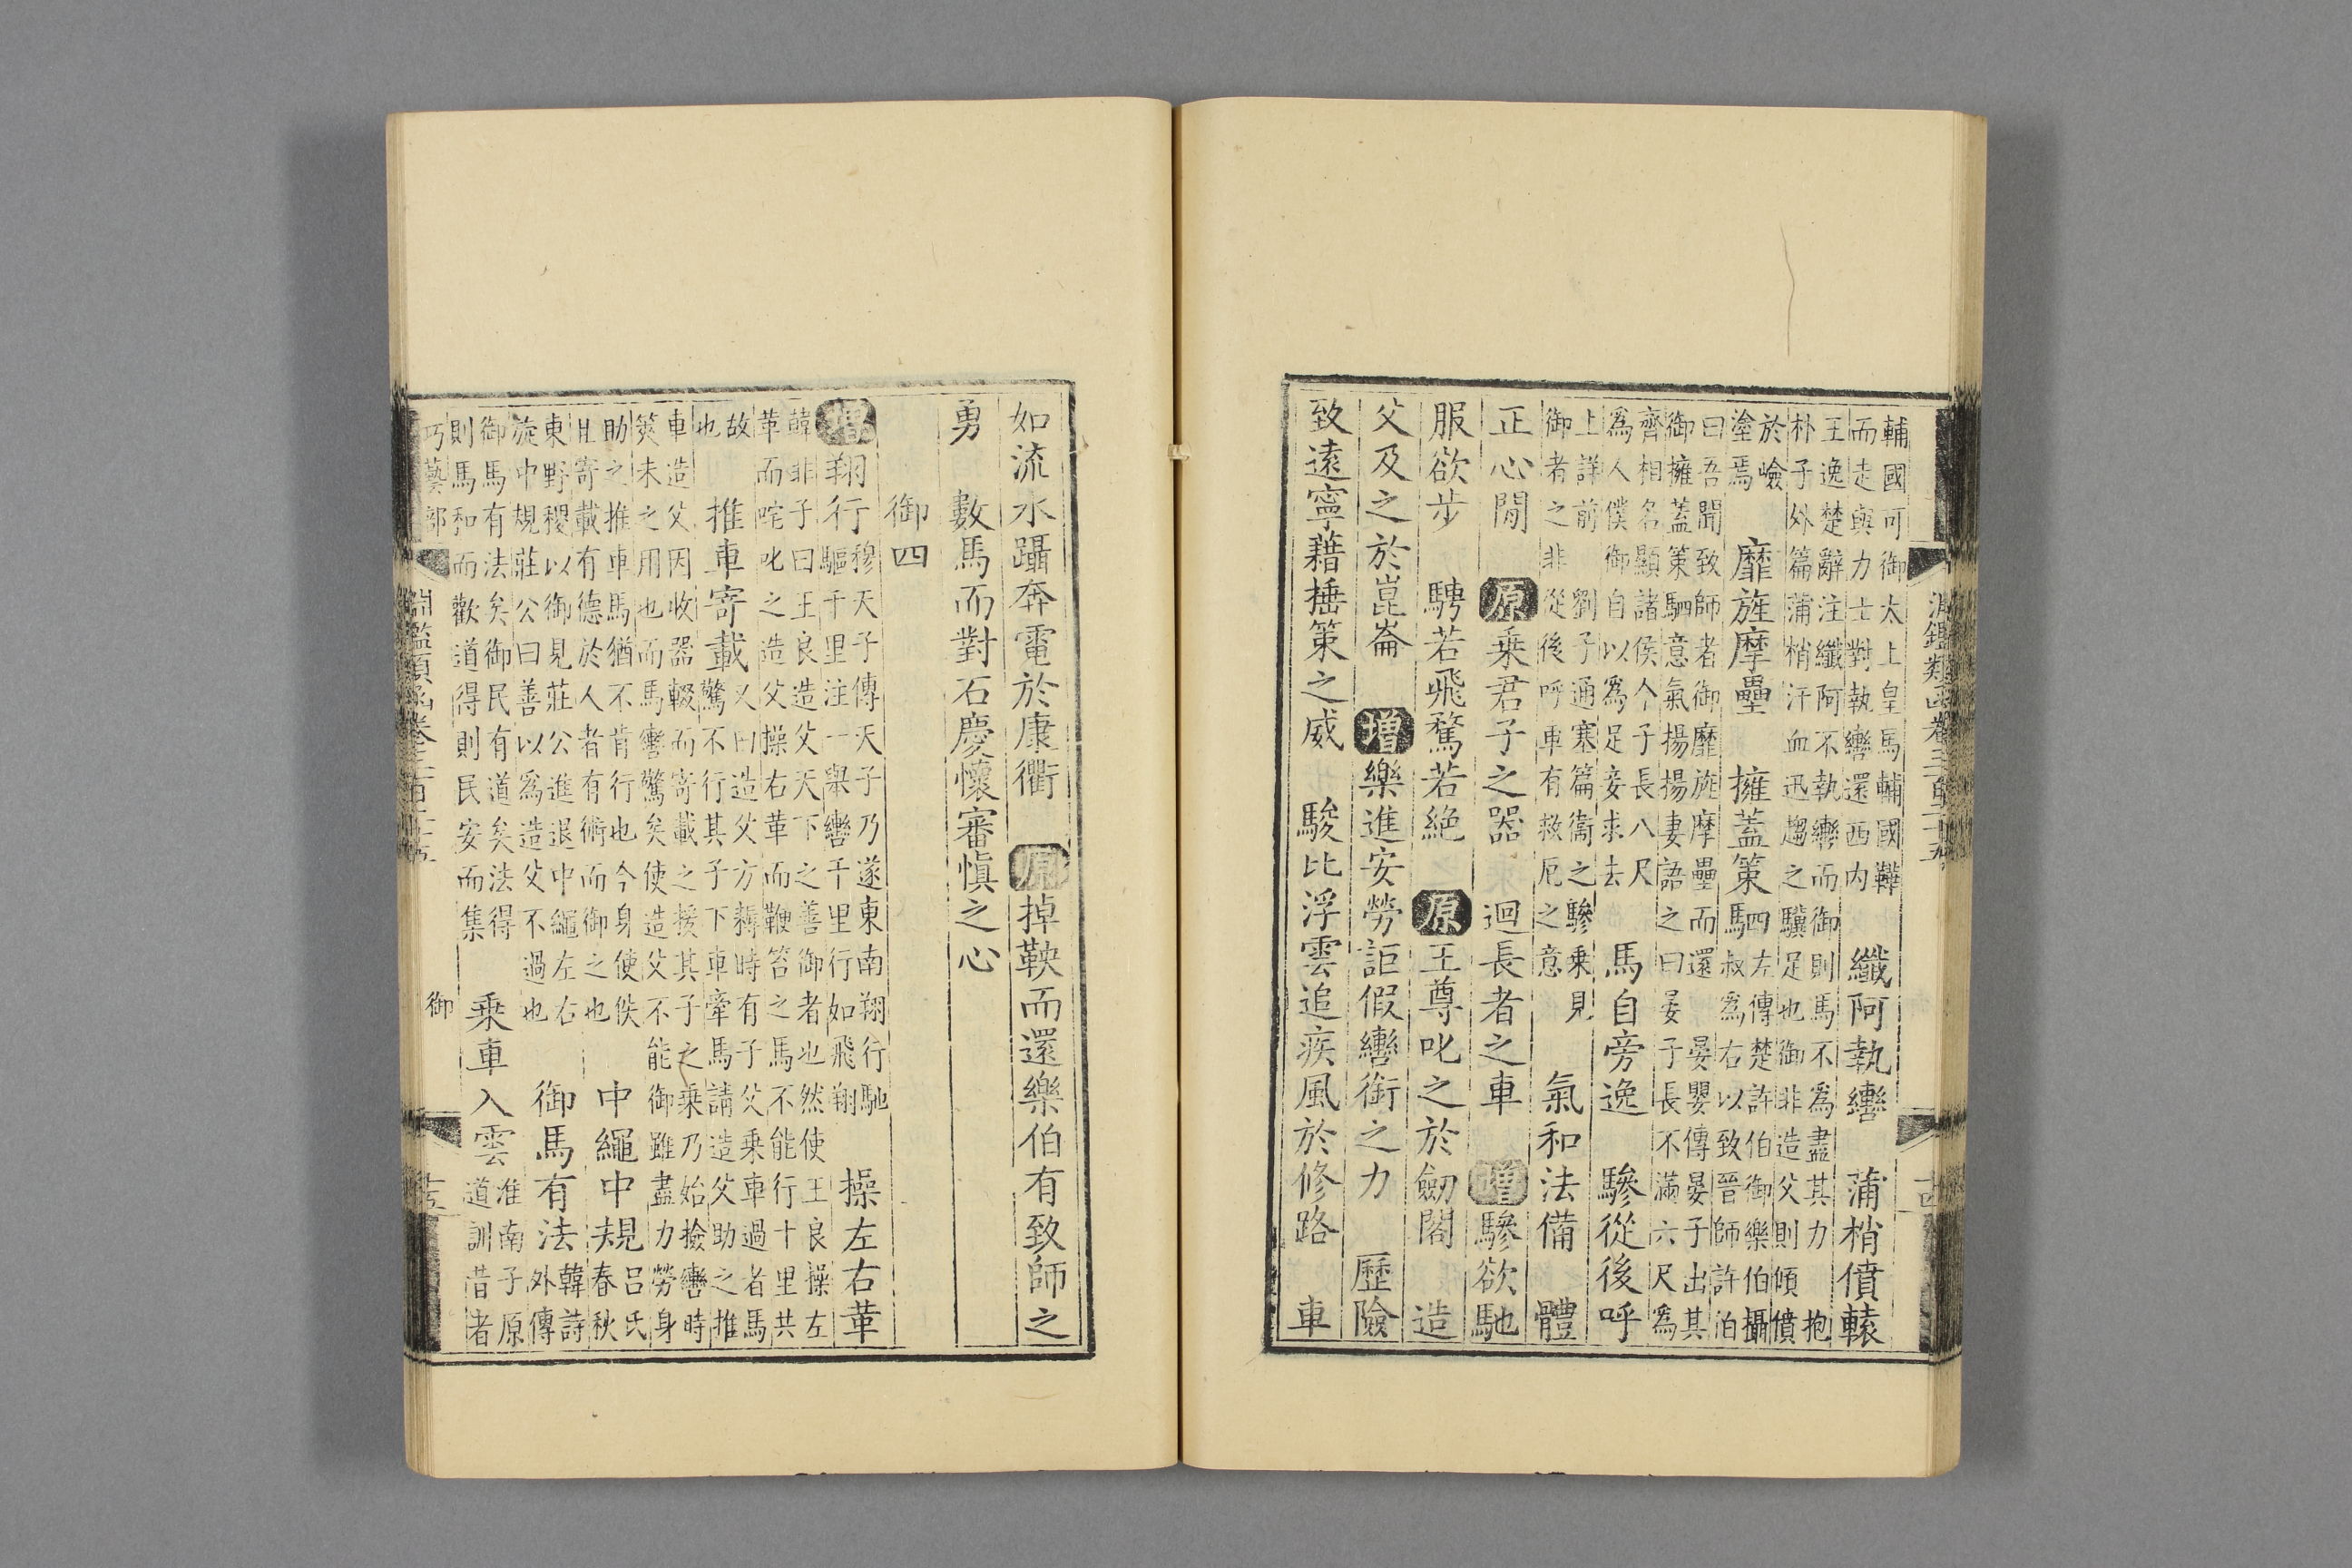 輔國可御太上皇馬輔國鞾
而走與力士對執轡還西内
纖阿執轡 蒲梢僨轅
王逸楚辭注纖阿不執轡而御則馬不為盡其力 抱
朴子外篇蒲梢汗血迅趨之驥足也御非造父則傾僨
於嶮
塗焉
靡旌摩壘 擁蓋策駟
左傳楚許伯御樂伯攝
叔為右以致晉師許伯
曰吾聞致師者御靡旌摩壘而還 晏嬰傳晏子出其
御擁蓋策駟意氣揚揚妻語之曰晏子長不滿六尺為
齊相名顯諸侯今子長八尺
為人僕御自以為足妾求去
馬自旁逸 驂從後呼
上詳前 劉子通塞篇衞之驂乗見
御者之非從後呼車有救厄之意
氣和法備 體
正心閒 原乗君子之器 迴長者之車 增驂欲馳
服欲步 騁若飛騖若絶 原王尊叱之於劒閣 造
父及之於崑崙 增樂進安勞詎假轡銜之力 歷險
致遠寧藉捶策之威 駿比浮雲追疾風於修路 車
如流水躡奔電於康衢 原掉鞅而還樂伯有致師之
勇 數馬而對石慶懷審慎之心
御四
增翔行
穆天子傳天子乃遂東南翔行馳
驅千里注一舉轡千里行如飛翔
操左右革
韓非子曰王良造父天下之善御者也然使王良操左
革而咤叱之造父操右革而鞭笞之馬不能行十里共
故
也
推車寄載
又曰造父方耨時有子父乗車過者馬
驚不行其子下車牽馬請造父助之推
車造父因收器輟而寄載之援其子之乗乃始撿轡時
筴未之用也而馬轡驚矣使造父不能御雖盡力勞身
助之推車馬猶不肯行也今身使佚
且寄載有德於人者有術而御之也
中繩中規
呂氏
春秋
東野稷以御見莊公進退中繩左右
旋中規莊公曰善以為造父不過也
御馬有法
韓詩
外傳
御馬有法矣御民有道矣法得
則馬和而歡道得則民安而集
乗車入雲
淮南子原
道訓昔者
巧藝部 淵鑑類函卷三百二十五 御